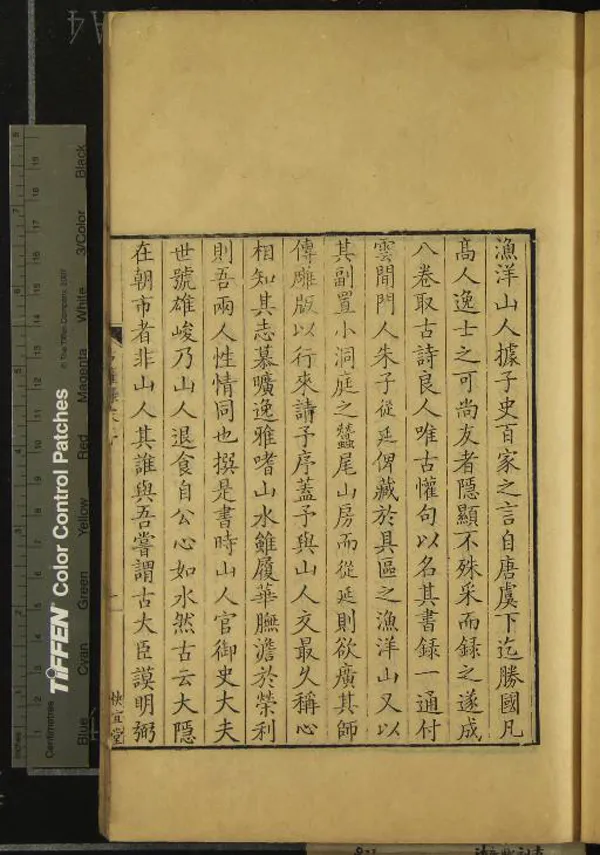 漁洋山人據子史百家之言自唐虞下迄勝國凡
高人逸士之可尚友者隱顯不殊采而録之遂成
八卷取古詩良人唯古懽句以名其書録一通付
雲間門人朱子從延俾藏於具區之漁洋山又以
其副置小洞庭之蠶尾山房而從延則欲廣其師
傳雕版以行來請予序蓋予與山人交最久稱心
相知其志慕曠逸雅嗜山水雖履華膴澹於榮利
則吾兩人性情同也撰是書時山人官御史大夫
世號雄峻乃山人退食自公心如水然古云大隱
在朝市者非山人其誰與吾嘗謂古大臣謨明弼
快宜堂
TIFFEN Color Control Patches
© The Tiffen Company, 2007
Centimetres
Inches
Blue
Cyan
Green
Yellow
Red
Magenta
White
3/Color
Black